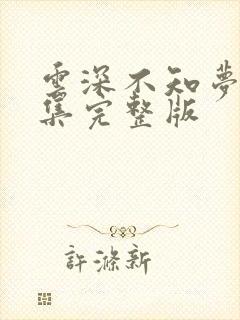 雲深不知夢
集完整版
許滌新